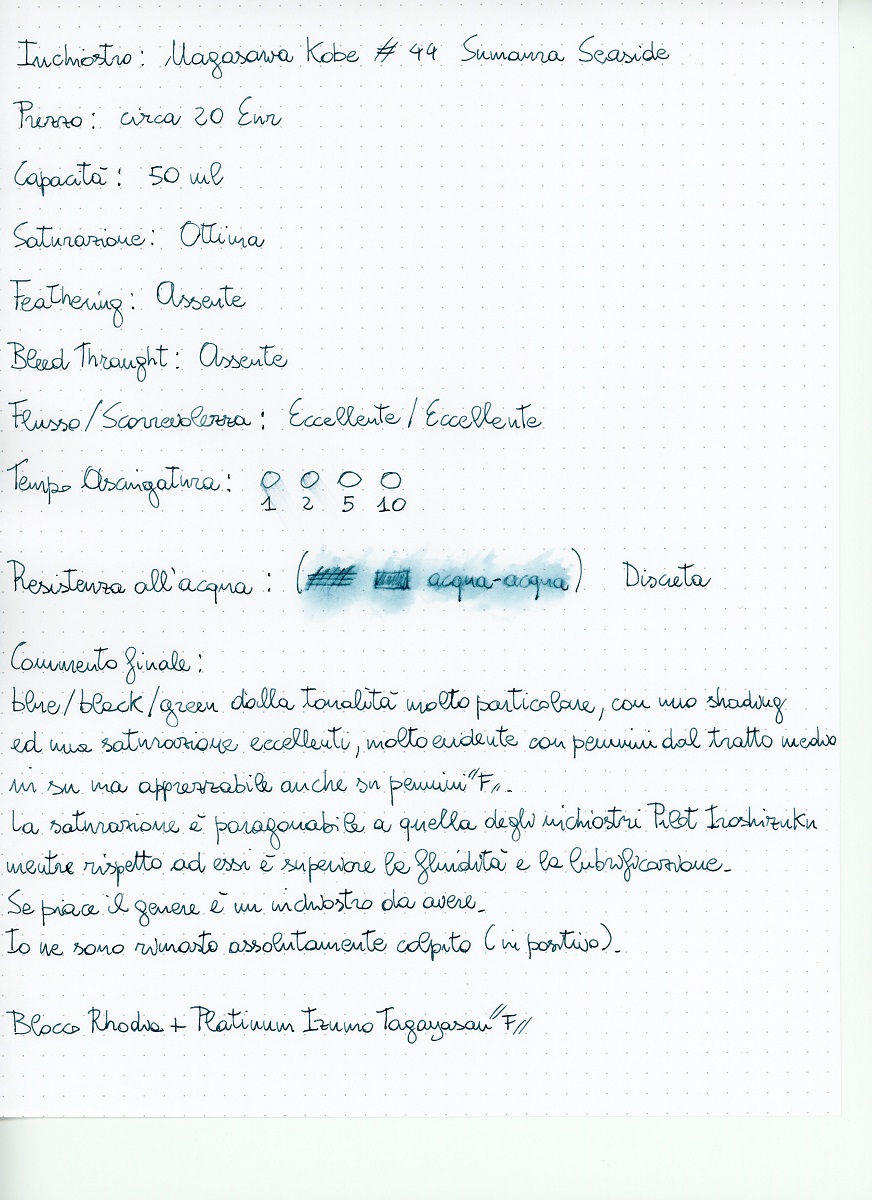 Inchiostro: Nagasawa Kobe # 44 Sumarira Seaside
Prezzo: circa 20 Eur
Capacità: 50 ml
Saturazione: Ottima
Feathering: Assente
Bleed Throught: Assente
Flusso/Scorrevolezza: Eccellente/Eccellente
Tempo Asciugatura: O O O O
1 2 5 10
Resistenza all'acqua: ( acqua-acqua) Discreta
Commento finale:
blue/black/green dalla tonalità molto particolare, con uno shading
ed una saturazione eccellenti, molto evidente con pennini dal tratto medio
in su ma apprezzabile anche su pennini "F".
La saturazione è paragonabile a quella degli inchiostri Pilot Iroshizuku
mentre rispetto ad essi è superiore la fluidità e la lubrificazione.
Se piace il genere è un inchiostro da avere.
Io ne sono rimasto assolutamente colpito (in positivo).
Blocco Rhodia + Platinum Izumo Tagayasan "F"